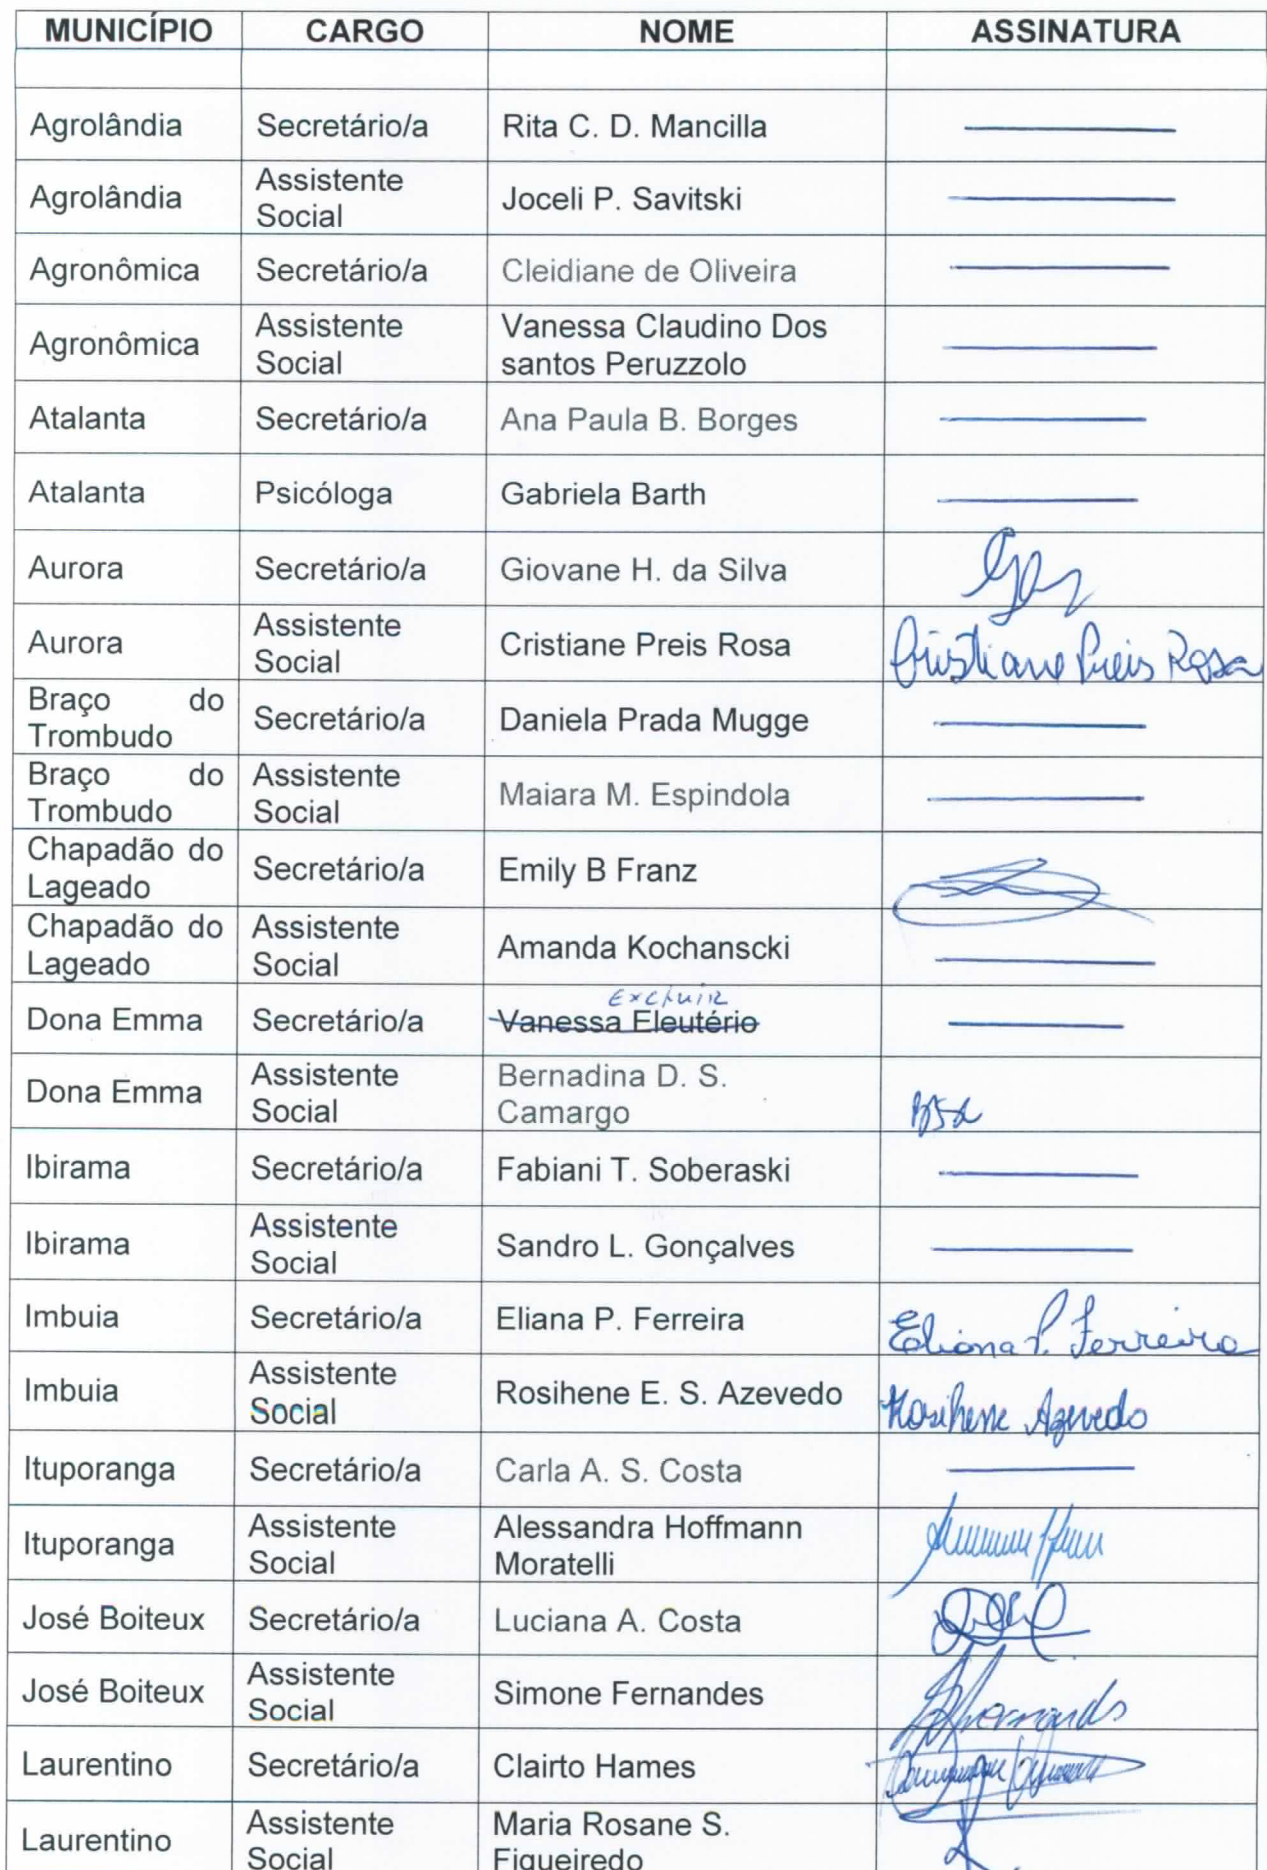 MUNICÍPIO CARGO NOME ASSINATURA
Agrolândia Secretário/a Rita C. D. Mancilla
Agrolândia Assistente Social Joceli P. Savitski
Agronômica Secretário/a Cleidiane de Oliveira
Agronômica Assistente Social Vanessa Claudino Dos santos Peruzzolo
Atalanta Secretário/a Ana Paula B. Borges
Atalanta Psicóloga Gabriela Barth
Aurora Secretário/a Giovane H. da Silva
Aurora Assistente Social Cristiane Preis Rosa Cristiane Preis Rosa
Braço do Trombudo Secretário/a Daniela Prada Mugge
Braço do Trombudo Assistente Social Maiara M. Espindola
Chapadão do Lageado Secretário/a Emily B Franz
Chapadão do Lageado Assistente Social Amanda Kochanscki
Excluir
Dona Emma Secretário/a Vanessa Eleutério
Dona Emma Assistente Social Bernadina D. S. Camargo
Ibirama Secretário/a Fabiani T. Soberaski
Ibirama Assistente Social Sandro L. Gonçalves
Imbuia Secretário/a Eliana P. Ferreira Eliana P. Ferreira
Imbuia Assistente Social Rosihene E. S. Azevedo Rosihene Azevedo
Ituporanga Secretário/a Carla A. S. Costa
Ituporanga Assistente Social Alessandra Hoffmann Moratelli
José Boiteux Secretário/a Luciana A. Costa
José Boiteux Assistente Social Simone Fernandes
Laurentino Secretário/a Clairto Hames
Laurentino Assistente Social Maria Rosane S. Figueiredo